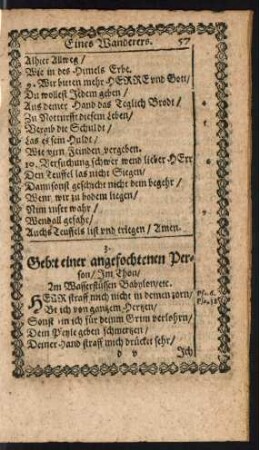 Eines Wanderers. 57
Alhier Allweg /
Wie in des Himels Erbe.
9. Wir biten mehr HERRE vnd Gott /
Du wollest Jdem geben /
Aus deiner Hand das Teglich Brodt /
Zu Notturfft diesem Leben /
Vergib die Schuldt /
Las es sein Huldt /
Wie wir Feinden vergeben.
10. Versuchung schwer wend lieber HErr
Den Teuffel las nicht Siegen /
Damit sonst geschicht nicht dein begehr /
Wenn wir zu bodem liegen /
Nim vnser wahr /
Wend all gefahr /
Auchs Teuffels list vnd triegen / Amen.
3.
Gebet einer angefochtenen Per-
son / Im Thon /
Am Wasserflüssen Babylon / etc.
HERR straff mich nicht in deinem zorn /
Bit ich von gantzem Hertzen /
Sonst bin ich für deinem Grim verlohrn /
Dein Pfeyle geben schmertzen /
Deine Hand straff mich drücket sehr /
d v Ich
Ps. 6.
Ps. 38